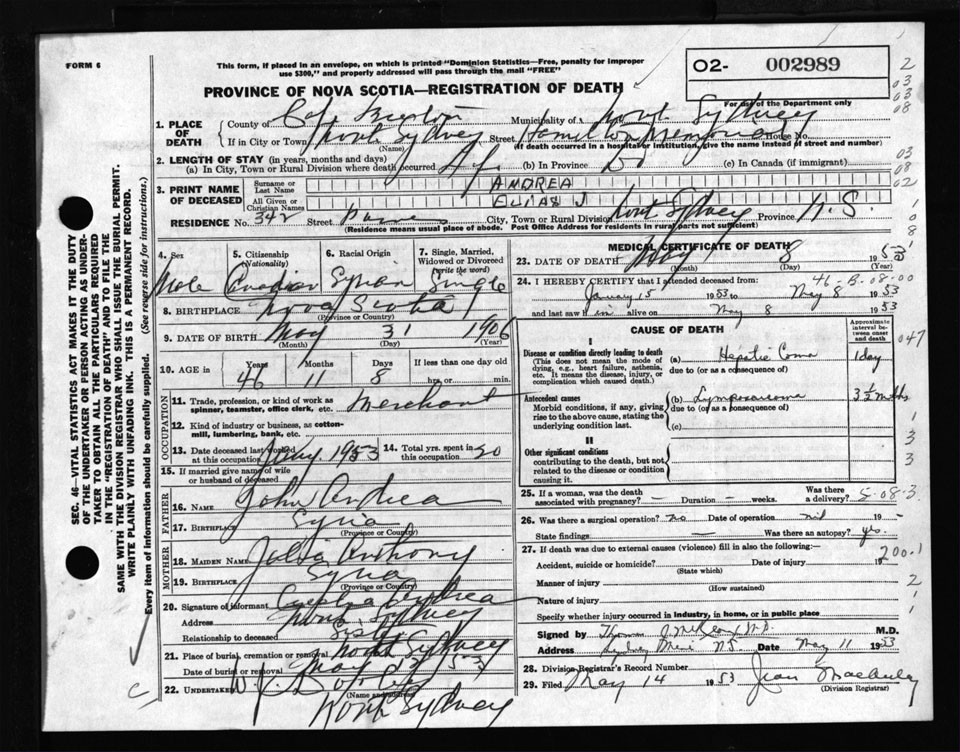 FORM 6
This form, if placed in an envelope, on which is printed "Dominion Statistics—Free, penalty for improper
use $300," and properly addressed will pass through the mail "FREE"
02- 002989
For use of the Department only
PROVINCE OF NOVA SCOTIA—REGISTRATION OF DEATH
1. PLACE OF DEATH
County of Cape Breton Municipality of North Sydney
If in City or Town North Sydney (Name) Street Hamilton Memorial House No.
(If death occurred in a hospital or institution, give name instead of street and number)
2. LENGTH OF STAY (in years, months and days)
(a) In City, Town or Rural Division where death occurred Life (b) In Province Do (c) In Canada (if immigrant)
3. PRINT NAME OF DECEASED
Surname or Last Name ANDREA
All Given or Christian Names ELIAS J
RESIDENCE No. 342 Street City, Town or Rural Division North Sydney Province N.S.
(Residence means usual place of abode. Post Office Address for residents in rural parts not sufficient)
4. Sex Male
5. Citizenship (Nationality) Canadian
6. Racial Origin Syrian
7. Single, Married, Widowed or Divorced (write the word) Single
8. BIRTHPLACE Nova Scotia
(Province or Country)
9. DATE OF BIRTH May 31 1906
(Month) (Day) (Year)
10. AGE in Years 46 Months 11 Days 8 If less than one day old
hrs. or min.
OCCUPATION
11. Trade, profession, or kind of work as spinner, teamster, office clerk, etc. Merchant
12. Kind of industry or business, as cotton-mill, lumbering, bank, etc.
13. Date deceased last worked at this occupation 1953
14. Total yrs. spent in this occupation 20
15. If married give name of wife or husband of deceased
FATHER
16. Name John Andrea
17. Birthplace Syria
(Province or Country)
MOTHER
18. MAIDEN NAME Julia Anthony
19. BIRTHPLACE Syria
(Province or Country)
20. Signature of informant Andrea
Address North Sydney
Relationship to deceased Sister
21. Place of burial, cremation or removal North Sydney
Date of burial or removal May 12 1953
22. UNDERTAKER
(Name and address)
North Sydney
MEDICAL CERTIFICATE OF DEATH
23. DATE OF DEATH May 8 1953
(Month) (Day) (Year)
24. I HEREBY CERTIFY that I attended deceased from:
January 15 1953 to May 8 1953
and last saw him alive on May 8 1953
CAUSE OF DEATH
Approximate interval between onset and death
I
Disease or condition directly leading to death (a) Hepatic Coma 1 day
(This does not mean the mode of dying, e.g., heart failure, asthenia, etc. It means the disease, injury, or complication which caused death.)
due to (or as a consequence of)
Antecedent causes (b) Lymposarcoma 3½ mths
Morbid conditions, if any, giving rise to the above cause, stating the underlying condition last.
due to (or as a consequence of)
(c)
II
Other significant conditions
contributing to the death, but not related to the disease or condition causing it.
25. If a woman, was the death associated with pregnancy? – Duration – weeks. Was there a delivery?
26. Was there a surgical operation? no Date of operation nil 19 –
State findings Was there an autopsy? yes.
27. If death was due to external causes (violence) fill in also the following:—
Accident, suicide or homicide? Date of injury 19
(State which)
Manner of injury
(How sustained)
Nature of injury
Specify whether injury occurred in industry, in home, or in public place
Signed by Thomas M.D.
Address Sydney Mines N.S. Date May 11 1953
28. Division Registrar's Record Number
29. Filed May 14 1953 Jean
(Division Registrar)
SEC. 46—VITAL STATISTICS ACT MAKES IT THE DUTY
OF THE UNDERTAKER OR PERSON ACTING AS UNDER-
TAKER TO OBTAIN ALL THE PARTICULARS REQUIRED
IN THE "REGISTRATION OF DEATH" AND TO FILE THE
SAME WITH THE DIVISION REGISTRAR WHO SHALL ISSUE THE BURIAL PERMIT.
WRITE PLAINLY WITH UNFADING INK. THIS IS A PERMANENT RECORD.
Every item of information should be carefully supplied. (See reverse side for instructions.)